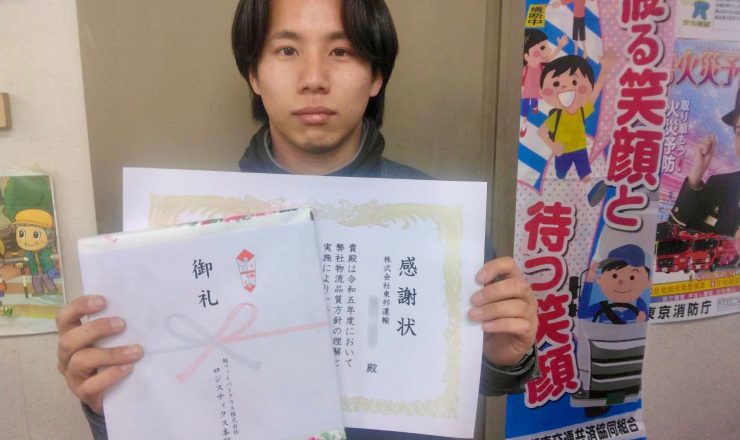 感謝状
株式会社東邦運輸
殿
貴殿は令和五年度において
弊社物流品質方針の理解と
実施により
御礼
ロジスティクス本部
横断中
渡る笑顔と
待つ笑顔
交通共済協同組合
火災予
取り組もう!
火災予防
東京消防庁